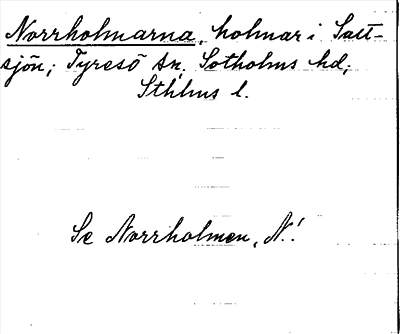 Norrholmarna, holmar i Salt-
sjön; Tyresö sn, Sotholms hd;
Sthlms l.
Se Norrholmen, N.!